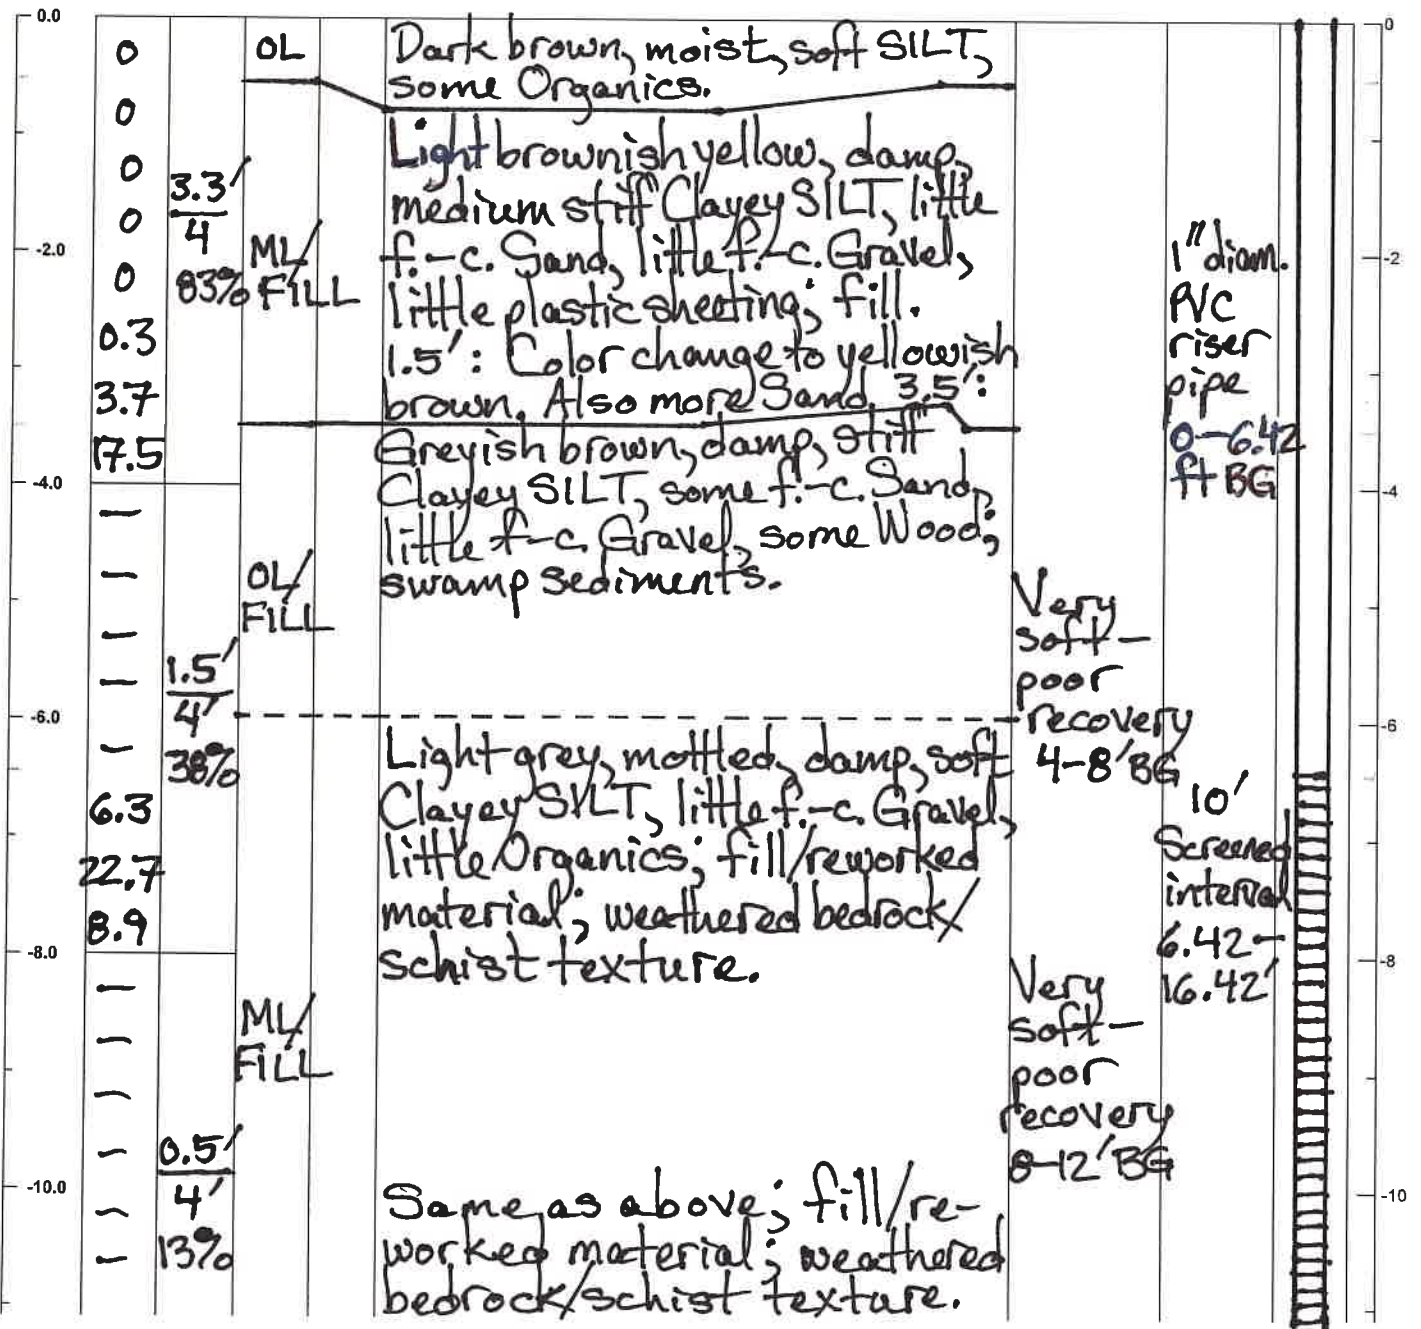 0.0
0
0
0
0
0
0.3
3.7
17.5
—
—
—
—
—
6.3
22.7
8.9
—
—
—
—
—
—
-2.0
-4.0
-6.0
-8.0
-10.0
3.3'
4
83%
1.5'
4'
38%
0.5'
4'
13%
OL
ML/
FILL
OL/
FILL
ML/
FILL
Dark brown, moist, soft SILT,
some Organics.
Light brownish yellow, damp,
medium stiff Clayey SILT, little
f.-c. Sand, little f.-c. Gravel,
little plastic sheeting; fill.
1.5': Color change to yellowish
brown. Also more Sand. 3.5':
Greyish brown, damp, stiff
Clayey SILT, some f.-c. Sand,
little f-c. Gravel, some Wood;
swamp sediments.
Light grey, mottled, damp, soft
Clayey SILT, little f.-c. Gravel,
little Organics; fill/reworked
material; weathered bedrock/
schist texture.
Same as above; fill/re-
worked material; weathered
bedrock/schist texture.
Very
soft—
poor
recovery
4-8' BG
Very
soft—
poor
recovery
8-12' BG
1" diam.
PVC
riser
pipe
0-6.42
ft BG
10'
Screened
interval
6.42-
16.42'
0
-2
-4
-6
-8
-10